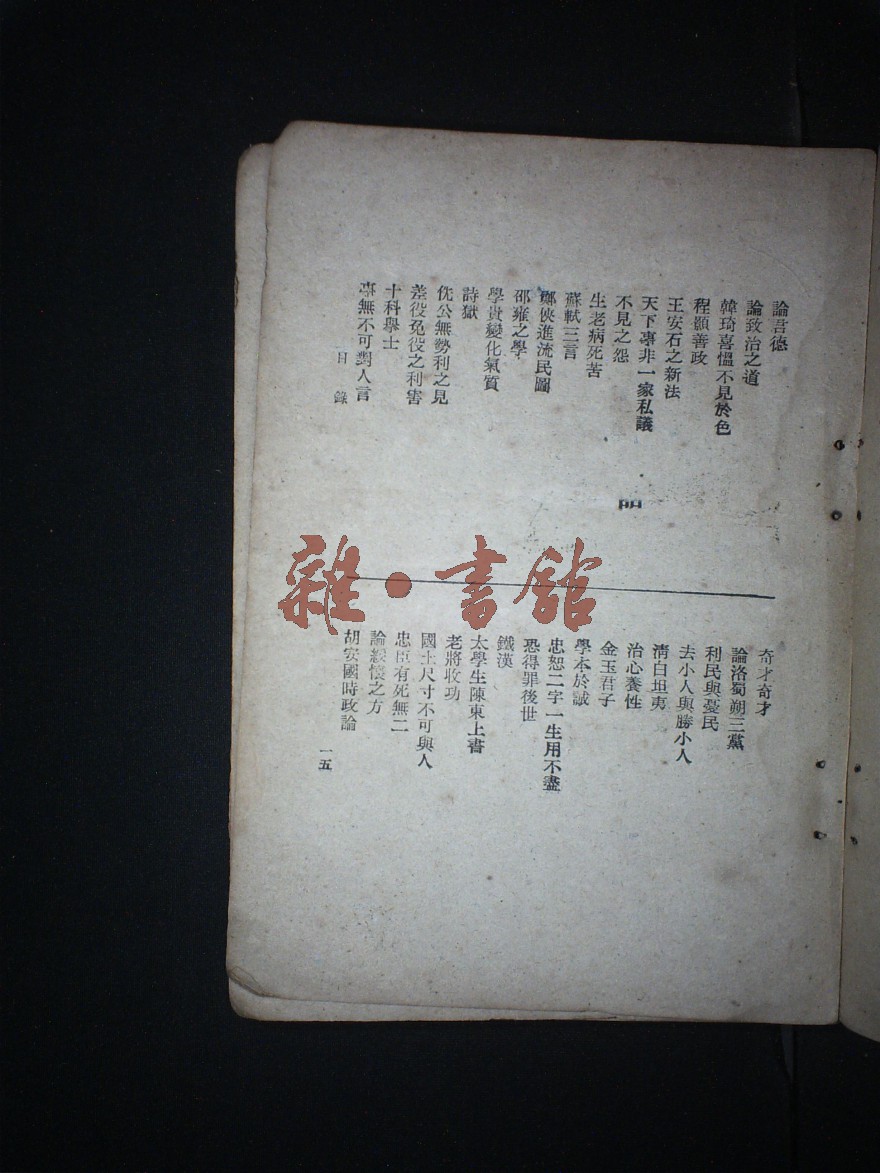 論君德
論致治之道
韓琦喜慍不見於色
程顥善政
王安石之新法
天下事非一家私議
不見之怨
生老病死苦
蘇軾三言
鄭俠進流民圖
邵雍之學
學貴變化氣質
詩獄
侁公無勢利之見
差役免役之利害
十科舉士
事無不可對人言
目錄
奇才奇才
論洛蜀朔三黨
利民與憂民
去小人與勝小人
清白坦夷
治心養性
金玉君子
學本於誠
忠恕二字一生用不盡
恐得罪後世
鐵漢
太學生陳東上書
老將收功
國土尺寸不可與人
忠臣有死無二
論綏懷之方
胡安國時政論
一五
雜·書館